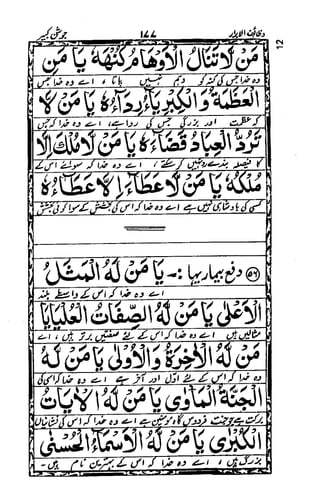 وظائف الابرار ۱۷۷ جوشن کبیر
12
مَنْ لَا تَنَالُ الْاَوْهَامُ كُنْهَهُ يَا مَنِ
وہ خدا جس کی کنہ کو وہم نہیں پاتا ، اے وہ خدا جس
الْعَظَمَةُ وَالْكِبْرِيَآءُ رِدَآءُهُ يَا مَنْ لَا
کو عظمت اور بزرگی جس کی ردا ہے ، اے وہ خدا کہ جس
تَرُدُّ الْعِبَادُ قَضَآءَهُ يَا مَنْ لَا مُلْكَ اِلَّا
کا فیصلہ بندے رد نہیں کر سکتے ، اے وہ خدا کہ سوائے اس کے
مُلْكُهُ يَا مَنْ لَا عَطَآءَ اِلَّا عَطَآءُهُ
کسی کی بادشاہی نہیں ہے اے وہ خدا کہ اس کی بخشش کے سوا کوئی بخشش
۵۶ دفع بیماریہا :- يَا مَنْ لَهُ الْمَثَلُ
اے وہ خدا کہ اس کے واسطے بلند
الْاَعْلٰى يَا مَنْ لَهُ الصِّفَاتُ الْعُلْيَا يَا
مثالیں ہیں اے وہ خدا کہ اس کے لئے صفتیں برتر ہیں ، اے
مَنْ لَهُ الْاٰخِرَةُ وَالْاُوْلٰى يَا مَنْ لَهُ
وہ خدا کہ اس کے لئے اول اور آخر ہے اے وہ خدا کہ اسی کی
الْجَنَّةُ الْمَاْوٰى يَا مَنْ لَهُ الْاٰيَاتُ
جنت فردوس اے وہ خدا کہ اس کی نشانیاں
الْكُبْرٰى يَا مَنْ لَهُ الْاَسْمَآءُ الْحُسْنٰى
بزرگ ہیں ، اے وہ خدا کہ اس کے بہترین نام ہیں -